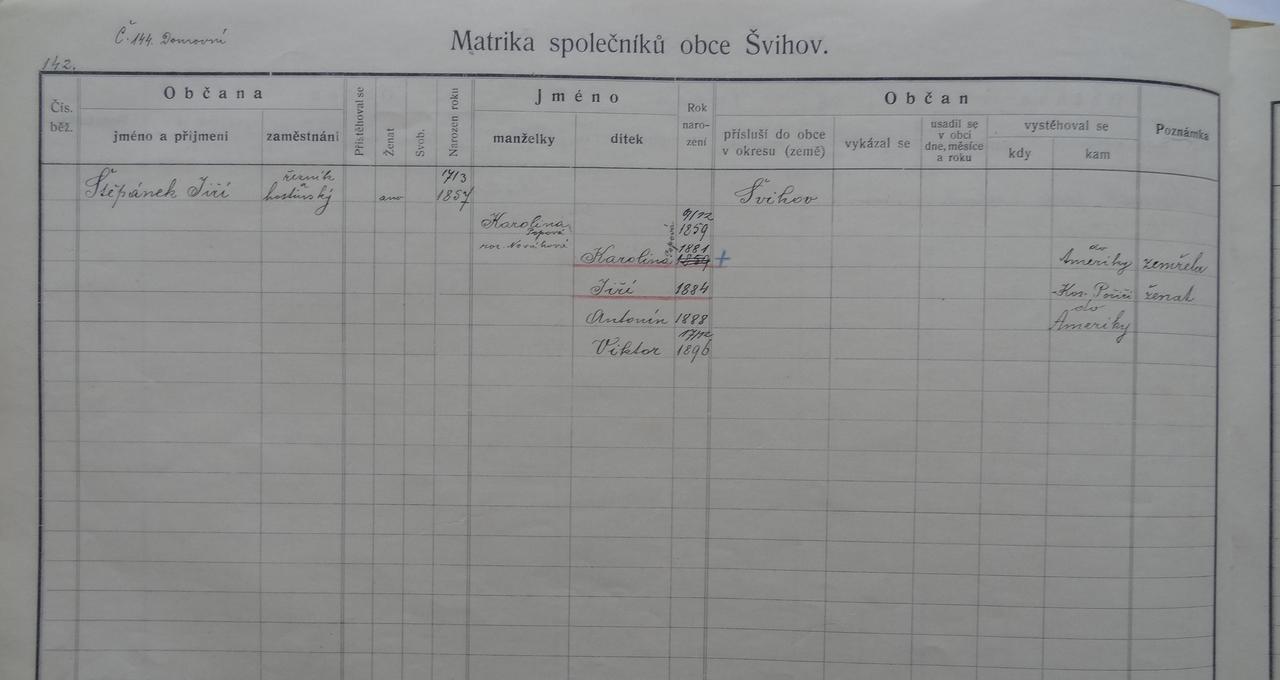 Č. 144. Domovní
Matrika společníků obce Švihov.
142.
Čís. běž.
Občana
jméno a přijmení
zaměstnání
Přistěhoval se
Ženat
Svob.
Narozen roku
Jméno
manželky
dítek
Rok naro- zení
Občan
přísluší do obce v okresu (země)
vykázal se
usadil se v obci dne, měsíce a roku
vystěhoval se
kdy
kam
Poznámka
Štěpánek Jiří
řezník a hostinský
ano
17/3 1857
Švihov
Karolina
roz. Nováková
9/12 1859
Karolina
1881
1859
+
do Ameriky
zemřela
Jiří
1884
Hor. Poříčí
ženat
Antonín
1888
do Ameriky
Viktor
17/12 1896